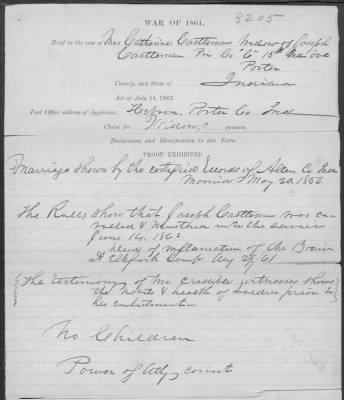 WAR OF 1861.
8205
Brief in the case of Mrs Catharine Castleman Widow of Joseph
Castleman Pri Co "C" 15th Ind Vol
Porter
County, and State of Indiana
Act of July 14, 1862
Post Office address of Applicant. Hebron, Porter Co Ind
Claim for Widow's pension.
Declaration and Identification in due Form.
PROOF EXHIBITED
Marriage shown by the certified records of Allen Co Ind
Married May 20. 1856
The Rolls show that Joseph Castleman was
enrolled & mustered into the service
June 14, 186
of inflamation of the Brain
At Elkfork Camp Aug 61
The testimony of two credible witnesses shows
the & health of soldier prior to
his enlistment
No Children
Power of Atty, correct